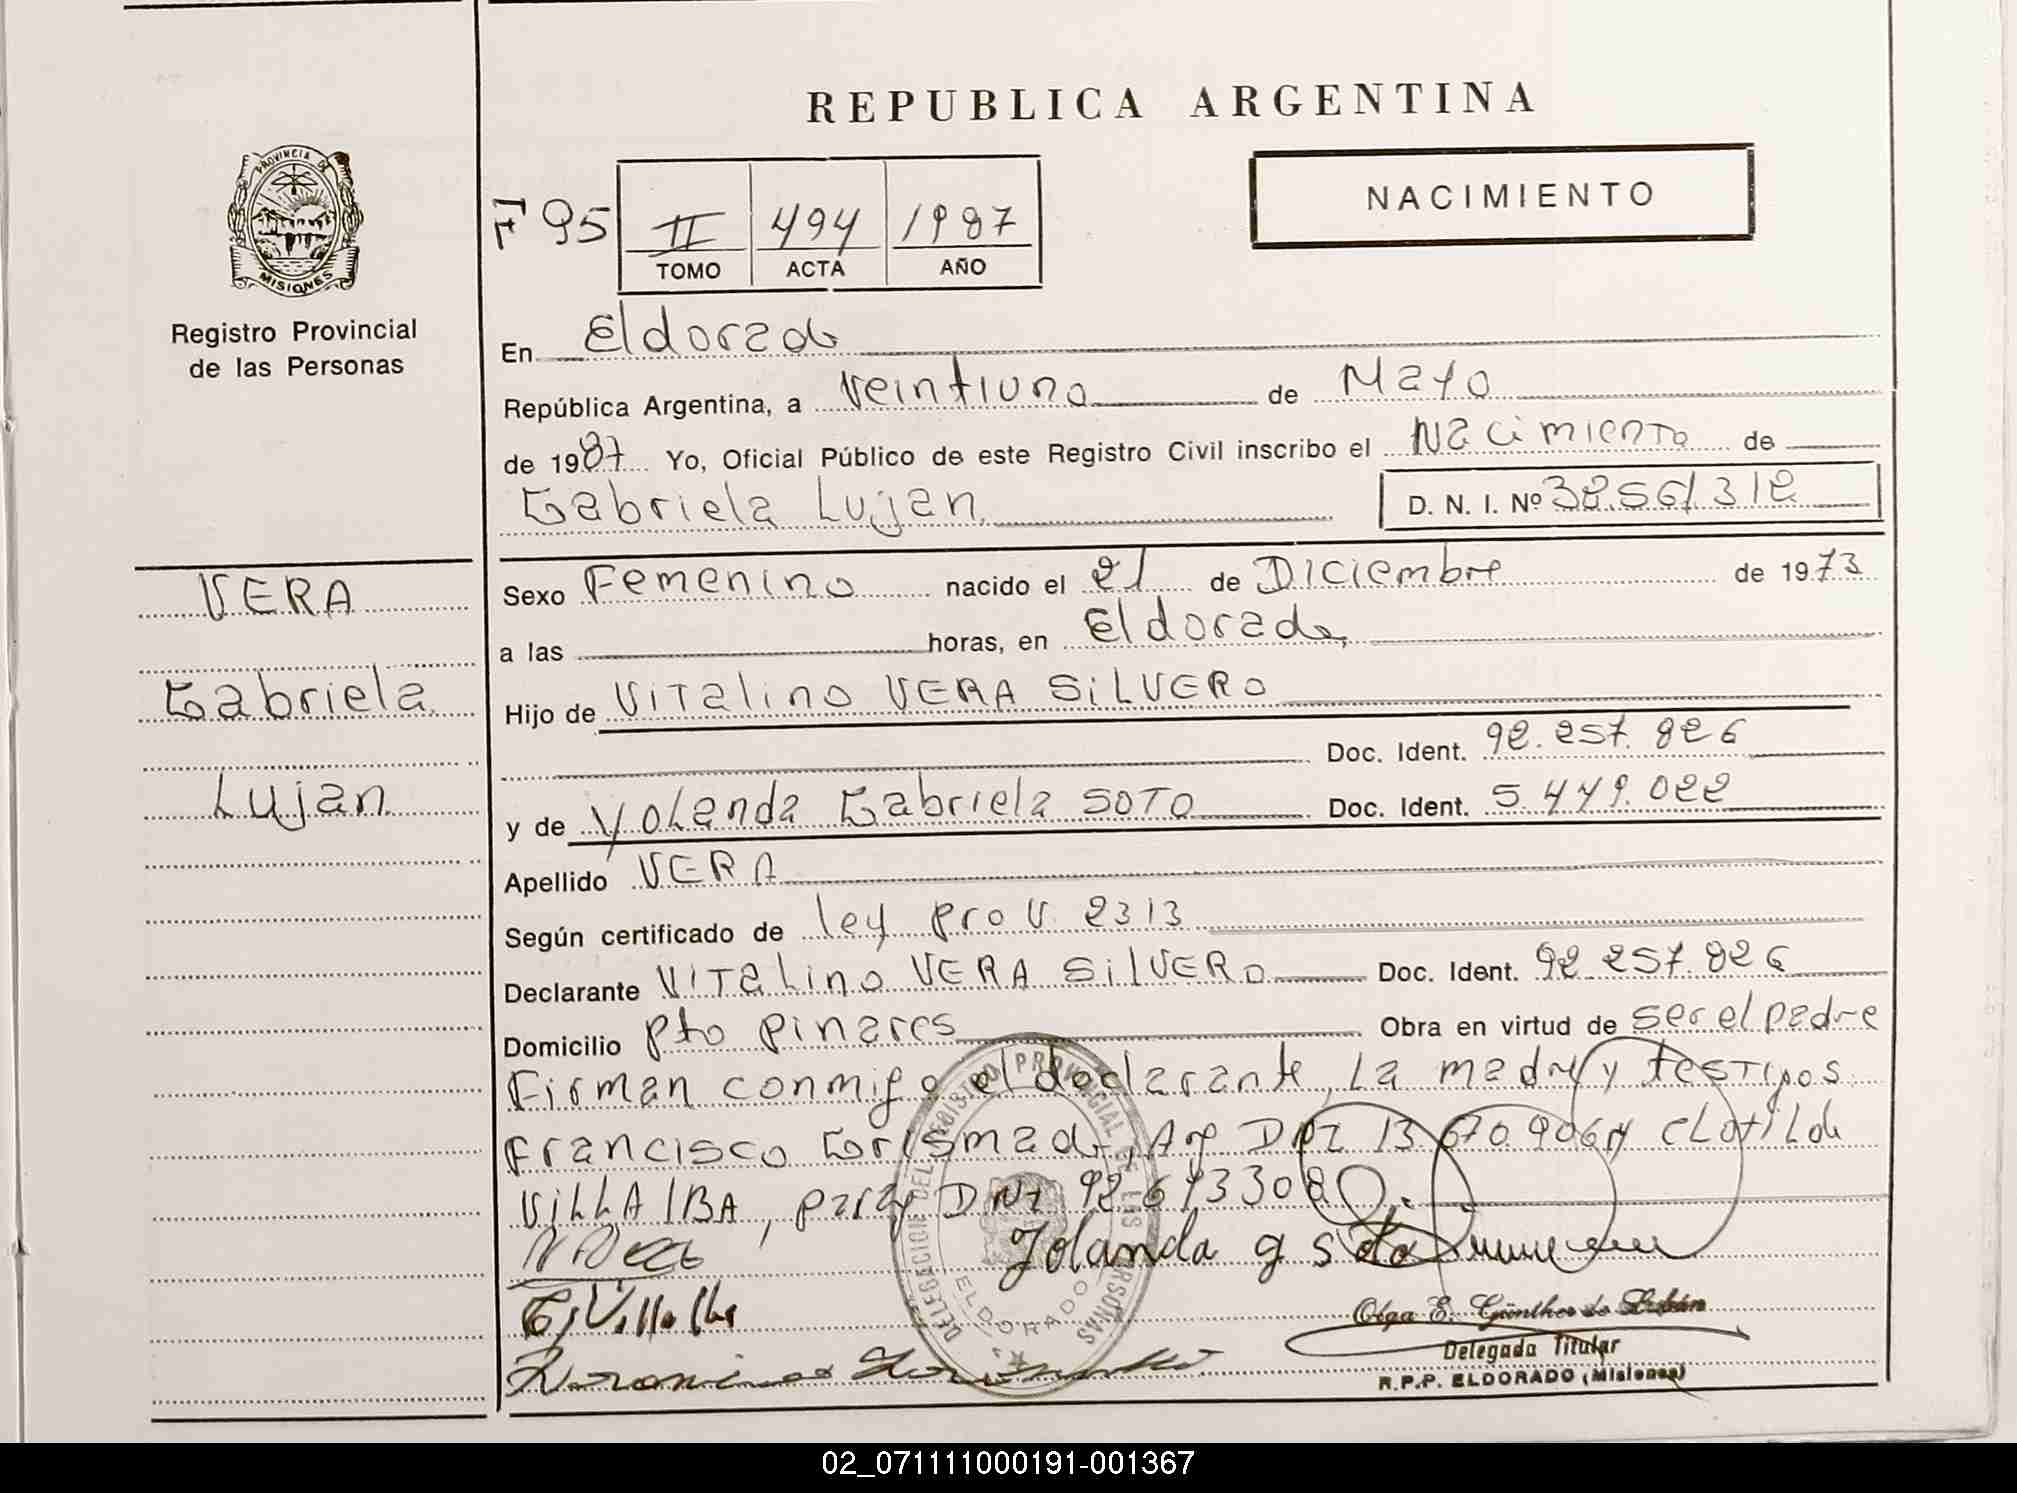 REPUBLICA ARGENTINA
NACIMIENTO
F 95
II 494 1987
TOMO ACTA AÑO
PROVINCIA DE
MISIONES
Registro Provincial
de las Personas
En Eldorado
República Argentina, a veintiuno de Mayo
de 1987 Yo, Oficial Público de este Registro Civil inscribo el Nacimiento de
Gabriela Lujan D. N. I. Nº 38.561.312
VERA
Gabriela
Lujan
Sexo Femenino nacido el 21 de Diciembre de 1973
a las horas, en Eldorado,
Hijo de Vitalino VERA SILVERO
Doc. Ident. 92.257.826
y de Yolanda Gabriela SOTO Doc. Ident. 5.449.022
Apellido VERA
Según certificado de ley prov. 2313
Declarante Vitalino VERA SILVERO Doc. Ident. 92.257.826
Domicilio Pto Pinares Obra en virtud de ser el padre
Firman conmigo el declarante, la madre y testigos
Francisco Arg 13.670.906 y Clotilde
VILLALBA, paray DNI
Yolanda g soto
Villalba
DELEGACION DEL REGISTRO PROVINCIAL DE LAS PERSONAS
ELDORADO
Olga E. Günther de
Delegada Titular
R.P.P. ELDORADO (Misiones)
02_071111000191-001367